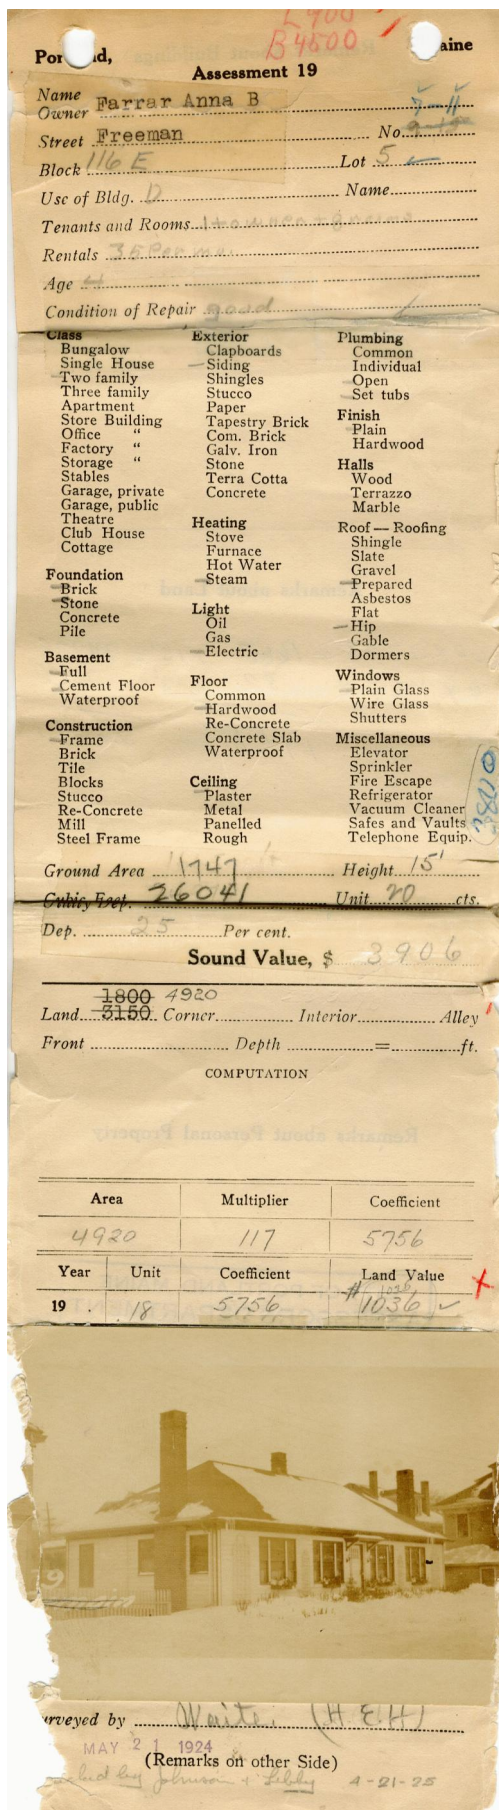 L900
B4500
Por nd, aine
Assessment 19
Name
Owner Farrar Anna B 7-11
Street Freeman No. 9-15
Block 116 E Lot 5
Use of Bldg. D Name
Tenants and Rooms 1 + owner + 8 rooms
Rentals 35 per mo.
Age 4
Condition of Repair good
Class
Bungalow
Single House
Two family
Three family
Apartment
Store Building
Office "
Factory "
Storage "
Stables
Garage, private
Garage, public
Theatre
Club House
Cottage
Foundation
Brick
Stone
Concrete
Pile
Basement
Full
Cement Floor
Waterproof
Construction
Frame
Brick
Tile
Blocks
Stucco
Re-Concrete
Mill
Steel Frame
Exterior
Clapboards
Siding
Shingles
Stucco
Paper
Tapestry Brick
Com. Brick
Galv. Iron
Stone
Terra Cotta
Concrete
Heating
Stove
Furnace
Hot Water
Steam
Light
Oil
Gas
Electric
Floor
Common
Hardwood
Re-Concrete
Concrete Slab
Waterproof
Ceiling
Plaster
Metal
Panelled
Rough
Plumbing
Common
Individual
Open
Set tubs
Finish
Plain
Hardwood
Halls
Wood
Terrazzo
Marble
Roof — Roofing
Shingle
Slate
Gravel
Prepared
Asbestos
Flat
Hip
Gable
Dormers
Windows
Plain Glass
Wire Glass
Shutters
Miscellaneous
Elevator
Sprinkler
Fire Escape
Refrigerator
Vacuum Cleaner
Safes and Vaults
Telephone Equip.
Ground Area 1747 Height 15'
Cubic Feet 26041 Unit 20 cts.
Dep. 25 Per cent.
Sound Value, $ 3906
1800 4920
Land 3150 Corner Interior Alley
Front Depth = ft.
COMPUTATION
Area Multiplier Coefficient
4920 117 5756
Year Unit Coefficient Land Value
1036
19 18 5756 # 1036
9
urveyed by Waite. (H.E.H)
MAY 21 1924
(Remarks on other Side)
by Johnson & Libby 4-21-25